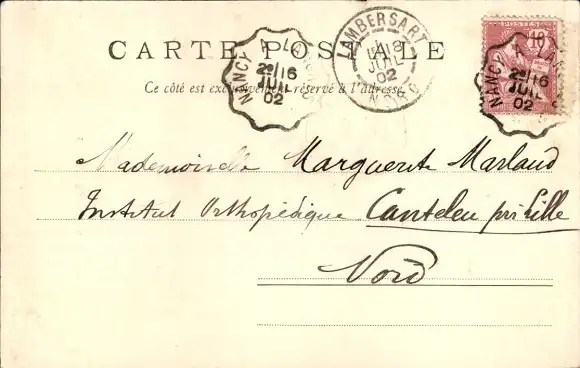 CARTE POSTALE
Ce côté est exclusivement réservé à l'adresse
NANCY A LA
2e/16
JUIL
02
LAMBERSART
18
JUIL
02
NORD
10
POSTES
NANCY A LA
2e/16
JUIL
02
Mademoiselle Marguerite Marlaud
Institut Orthopédique Canteleu près Lille
Nord